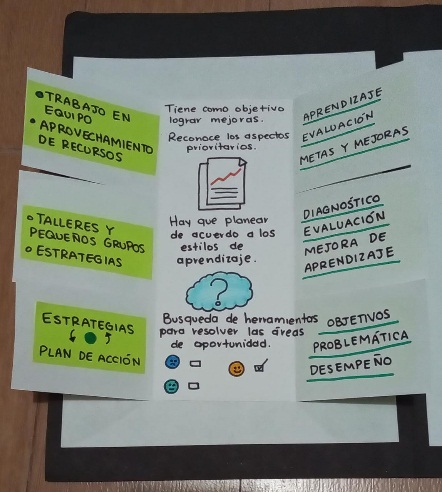 •TRABAJO EN
EQUIPO
•APROVECHAMIENTO
DE RECURSOS
Tiene como objetivo
lograr mejoras.
Reconoce los aspectos
prioritarios.
APRENDIZAJE
EVALUACIÓN
METAS Y MEJORAS
•TALLERES Y
PEQUEÑOS GRUPOS
•ESTRATEGIAS
Hay que planear
de acuerdo a los
estilos de
aprendizaje.
DIAGNÓSTICO
EVALUACIÓN
MEJORA DE
APRENDIZAJE
?
ESTRATEGIAS
PLAN DE ACCIÓN
Busqueda de herramientas
para resolver las áreas
de oportunidad.
OBJETIVOS
PROBLEMÁTICA
DESEMPEÑO